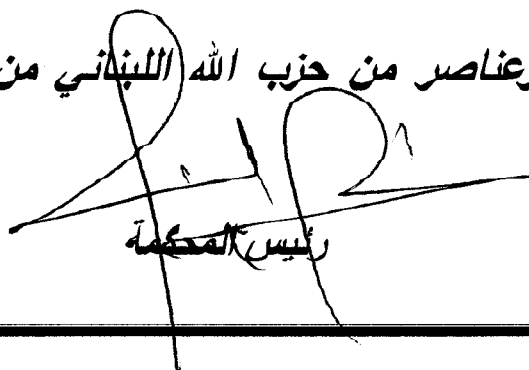 وعناصر من حزب الله اللبناني من
رئيس المحكمة